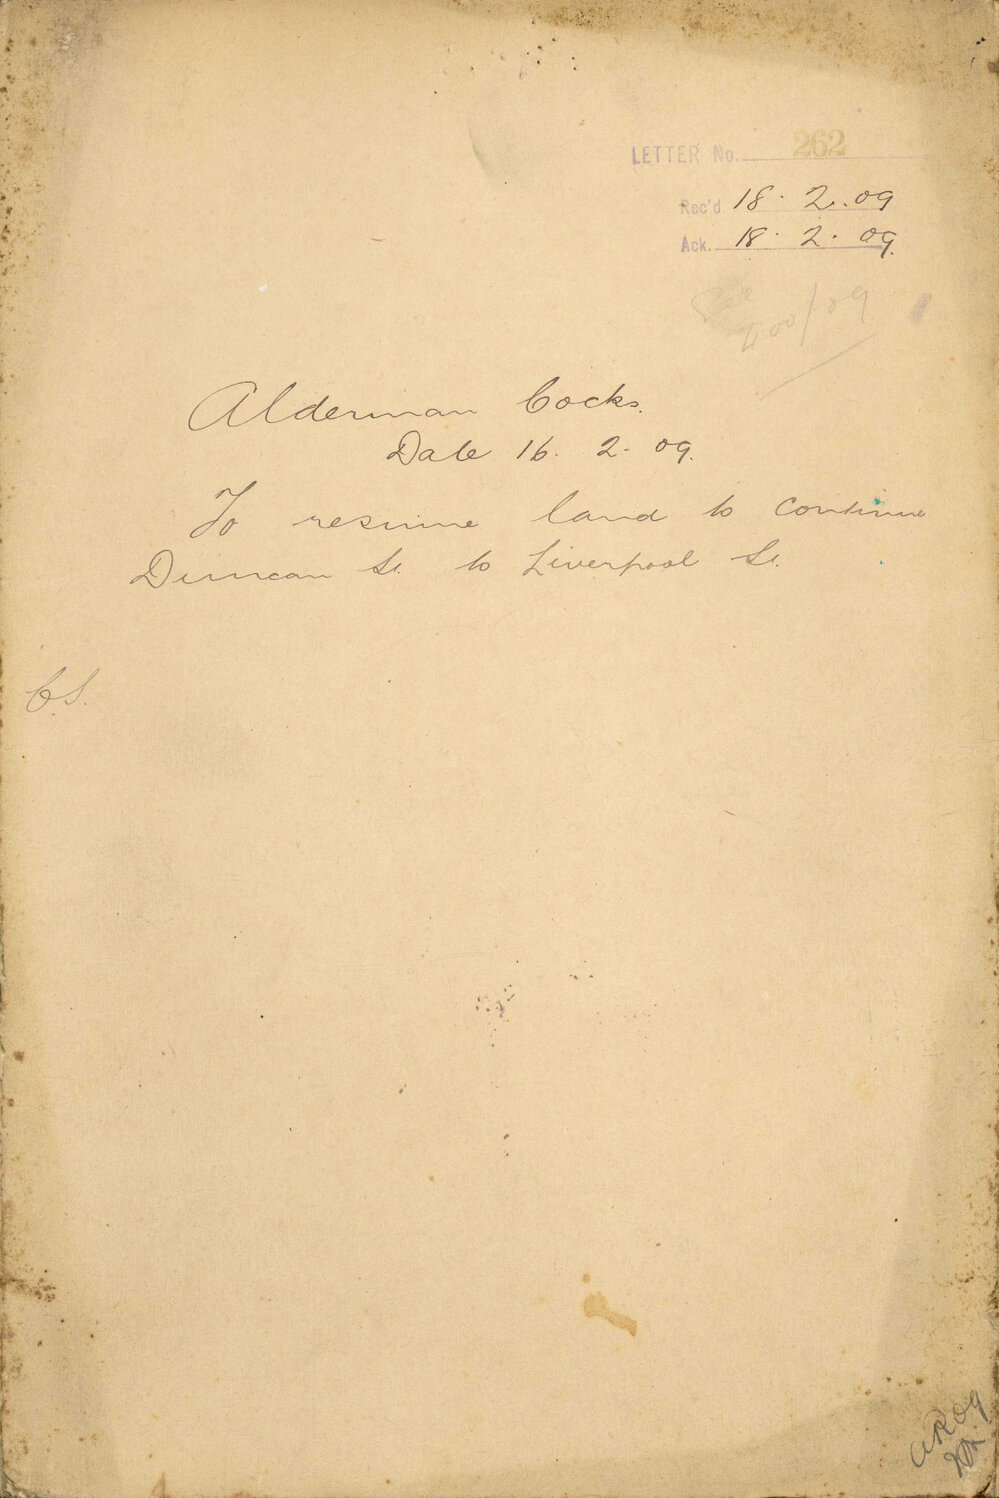 LETTER No. 262
Rec'd 18. 2. 09
Ack. 18. 2. 09.
See
Alderman Cocks.
Date 16. 2. 09.
To resume land to continue
Duncan St. to Liverpool St.
C.S.